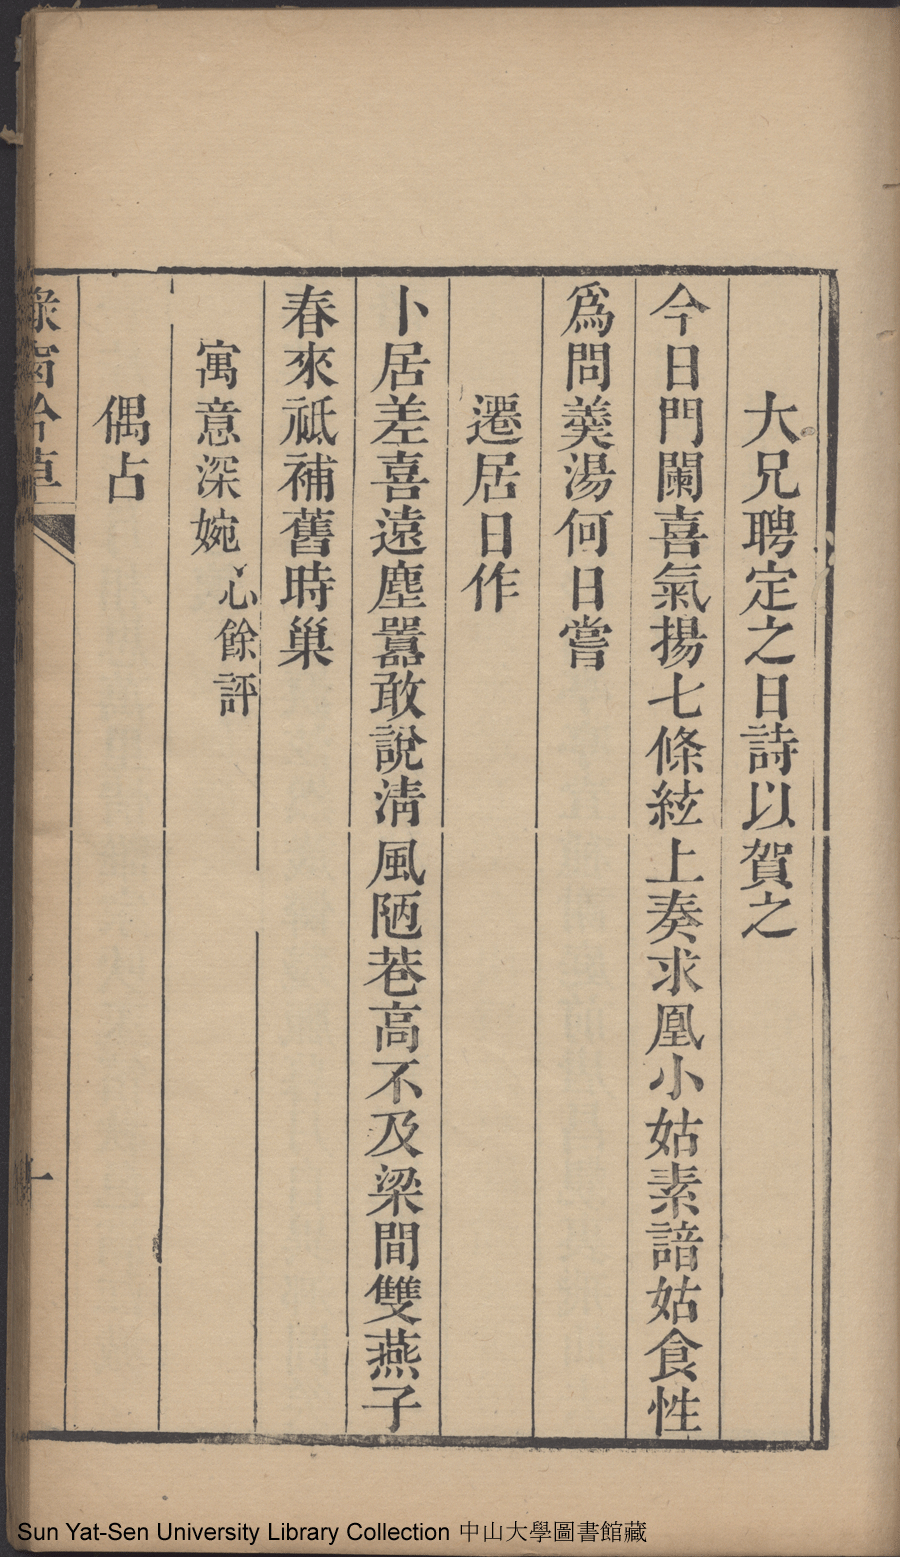 大兄聘定之日詩以賀之
今日門闌喜氣揚七條絃上奏求凰小姑素諳姑食性
爲問羹湯何日嘗
遷居日作
卜居差喜遠塵囂敢說清風陋巷高不及梁間雙燕子
春來祗補舊時巢
寓意深婉心餘評
偶占
一
Sun Yat-Sen University Library Collection 中山大學圖書館藏